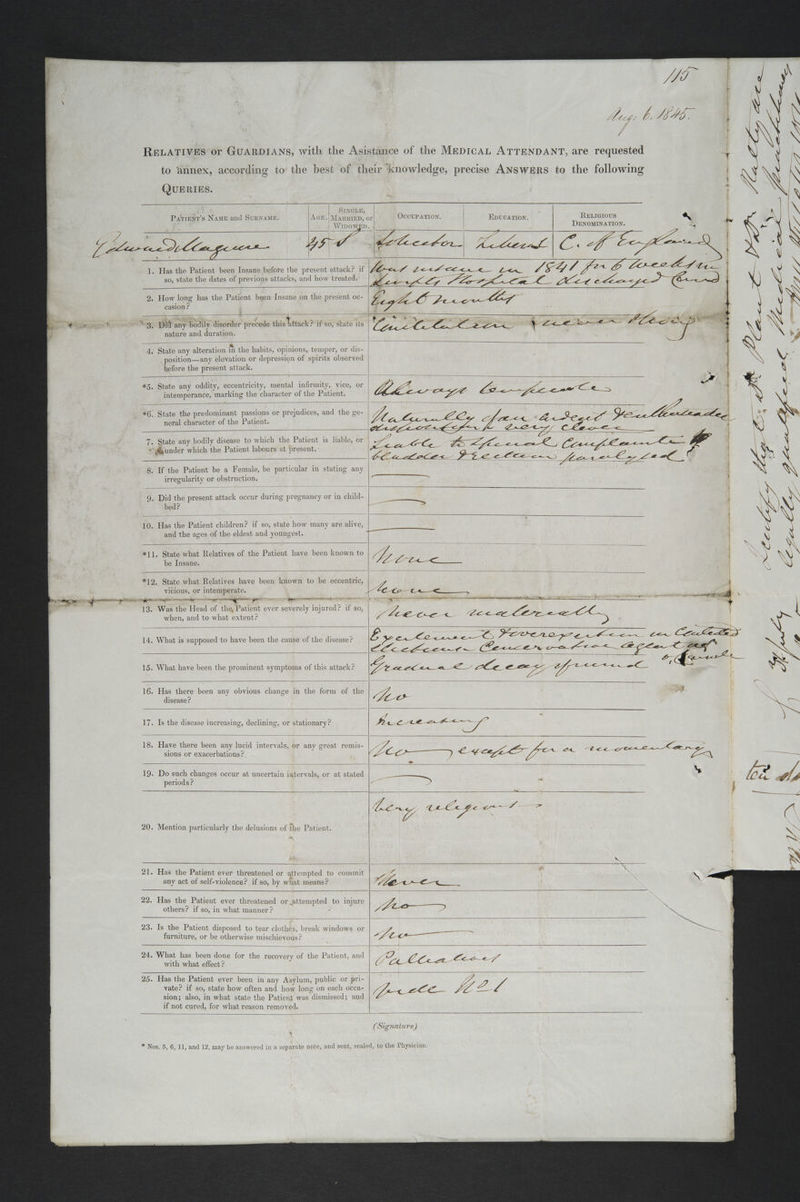 115
Aug: 6. 1845.
RELATIVES or GUARDIANS, with the Asistance of the MEDICAL ATTENDANT, are requested
to annex, according to the best of their knowledge, precise ANSWERS to the following
QUERIES.
PATIENT'S NAME and SURNAME. AGE. SINGLE, MARRIED, or WIDOWED. OCCUPATION. EDUCATION. RELIGIOUS DENOMINATION.
Edward Maguire 45 S Solicitor Liberal C. of England
1. Has the Patient been Insane before the present attack? if
so, state the dates of previous attacks, and how treated.
Was insane in 1841 for 6 weeks in
Hospital discharged Cured
2. How long has the Patient been Insane on the present oc-
casion?
Eight months
3. Did any bodily disorder precede this attack? if so, state its
nature and duration.
Constitution never strong
4. State any alteration in the habits, opinions, temper, or dis-
position—any elevation or depression of spirits observed
before the present attack.
*5. State any oddity, eccentricity, mental infirmity, vice, or
intemperance, marking the character of the Patient.
Always temperate
*6. State the predominant passions or prejudices, and the ge-
neral character of the Patient.
Naturally of an ardent &
disposition & very clever
7. State any bodily disease to which the Patient is liable, or
under which the Patient labours at present.
Liable to Spinal Complaint
bladder & rectum paralysed
8. If the Patient be a Female, be particular in stating any
irregularity or obstruction.
9. Did the present attack occur during pregnancy or in child-
bed?
10. Has the Patient children? if so, state how many are alive,
and the ages of the eldest and youngest.
*11. State what Relatives of the Patient have been known to
be Insane.
None
*12. State what Relatives have been known to be eccentric,
vicious, or intemperate.
none
13. Was the Head of the Patient ever severely injured? if so,
when, and to what extent?
never materially
14. What is supposed to have been the cause of the disease?
Excitement & over exertion in Contested
Elections Conservative
15. What have been the prominent symptoms of this attack?
Gradual decay of mind
16. Has there been any obvious change in the form of the
disease?
No
17. Is the disease increasing, declining, or stationary?
increasing
18. Have there been any lucid intervals, or any great remis-
sions or exacerbations?
No except for a momentary
19. Do such changes occur at uncertain intervals, or at stated
periods?
20. Mention particularly the delusions of the Patient.
Very religious
21. Has the Patient ever threatened or attempted to commit
any act of self-violence? if so, by what means?
Never
22. Has the Patient ever threatened or attempted to injure
others? if so, in what manner?
No
23. Is the Patient disposed to tear clothes, break windows or
furniture, or be otherwise mischievous?
No
24. What has been done for the recovery of the Patient, and
with what effect?
Palliatives
25. Has the Patient ever been in any Asylum, public or pri-
vate? if so, state how often and how long on each occa-
sion; also, in what state the Patient was dismissed; and
if not cured, for what reason removed.
Vide No 1
(Signature)
* Nos. 5, 6, 11, and 12, may be answered in a separate note, and sent, sealed, to the Physician.